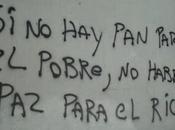 SI NO HAY PAN PAR
EL POBRE, NO HABR
PAZ PARA EL RIC